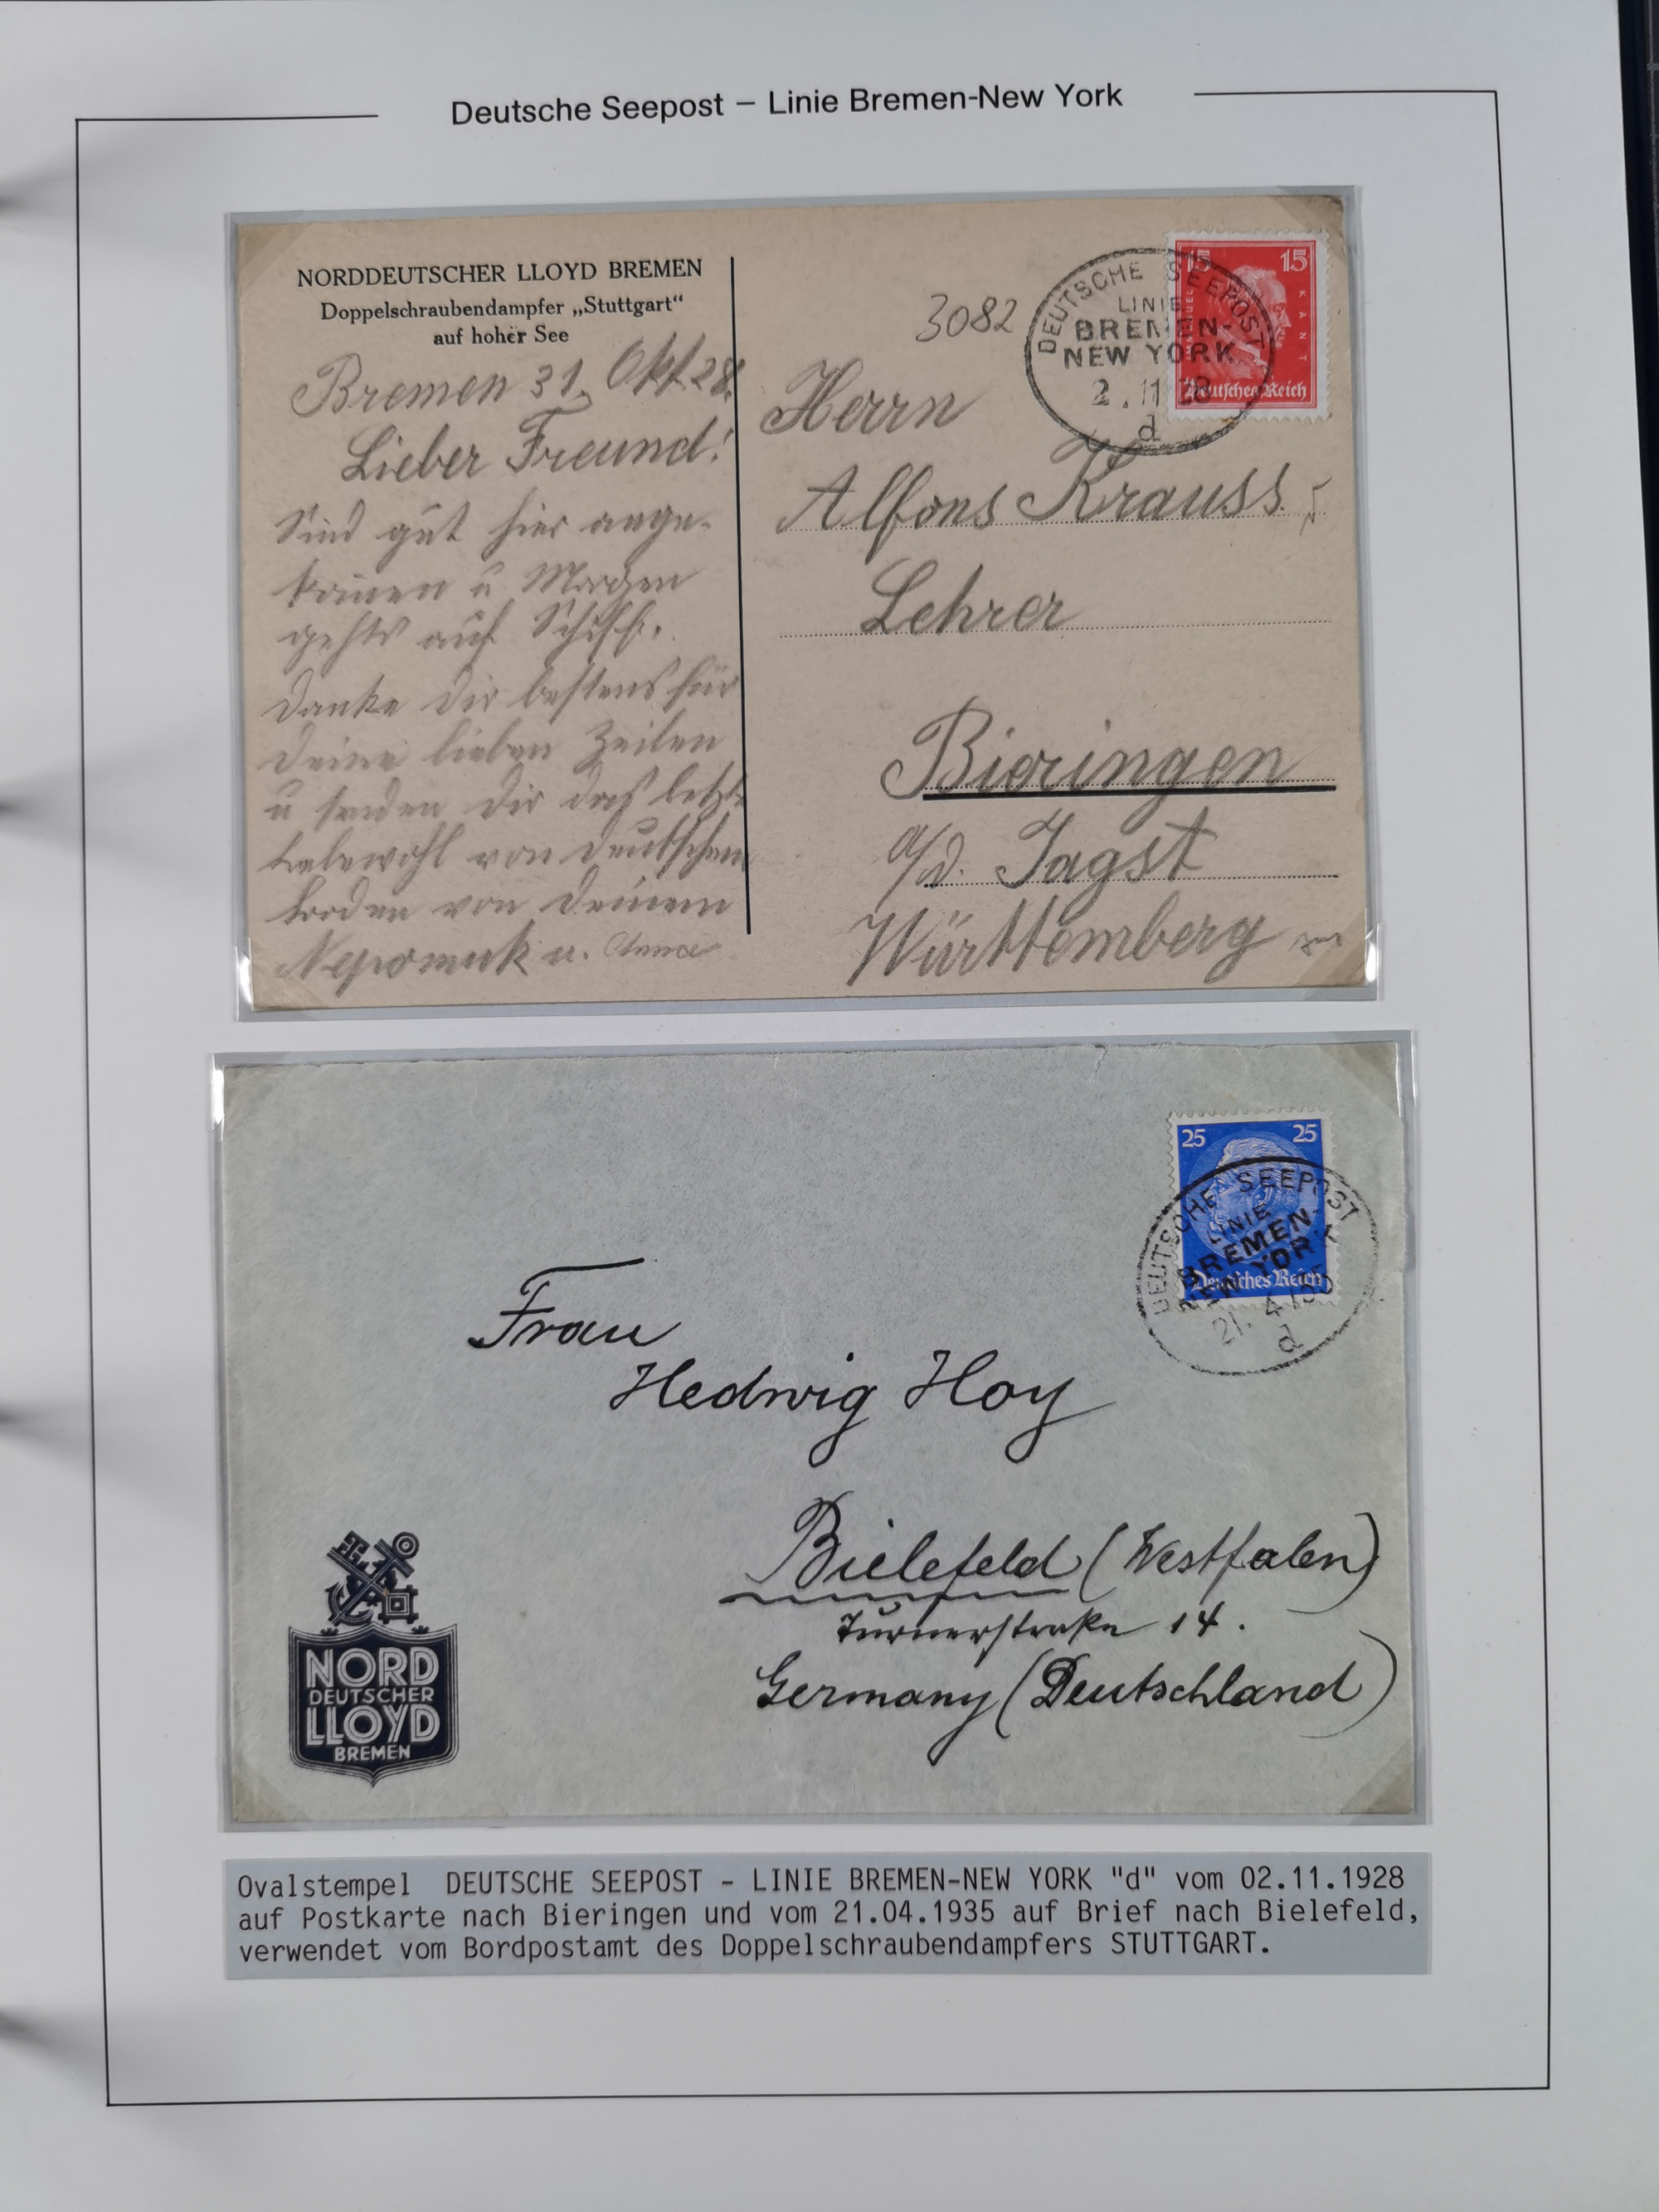 Deutsche Seepost – Linie Bremen-New York
NORDDEUTSCHER LLOYD BREMEN
Doppelschraubendampfer „Stuttgart“
auf hoher See
Bremen 31. Okt 28.
Lieber Freund!
Sind gut hier ange-
kommen u Morgen
gehts auf Schiff.
Danke Dir bestens für
Deine lieben Zeilen
u senden Dir das letzte
Lebewohl von deutschem
Boden von Deinem
Nepomuk u. Anna
3082
DEUTSCHE SEEPOST
LINIE
BREMEN-
NEW YORK
2.11 28
d
15 15
KANT
Deutsches Reich
Herrn
Alfons Krauss
Lehrer
Bieringen
a/d. Jagst
Württemberg
25 25
Deutsches Reich
DEUTSCHE SEEPOST
LINIE
BREMEN-
NEW YORK
21. 4 35
d
Frau
Hedwig Hoy
Bielefeld (Westfalen)
Turnerstraße 14.
Germany (Deutschland)
NORD
DEUTSCHER
LLOYD
BREMEN
Ovalstempel DEUTSCHE SEEPOST - LINIE BREMEN-NEW YORK "d" vom 02.11.1928
auf Postkarte nach Bieringen und vom 21.04.1935 auf Brief nach Bielefeld,
verwendet vom Bordpostamt des Doppelschraubendampfers STUTTGART.